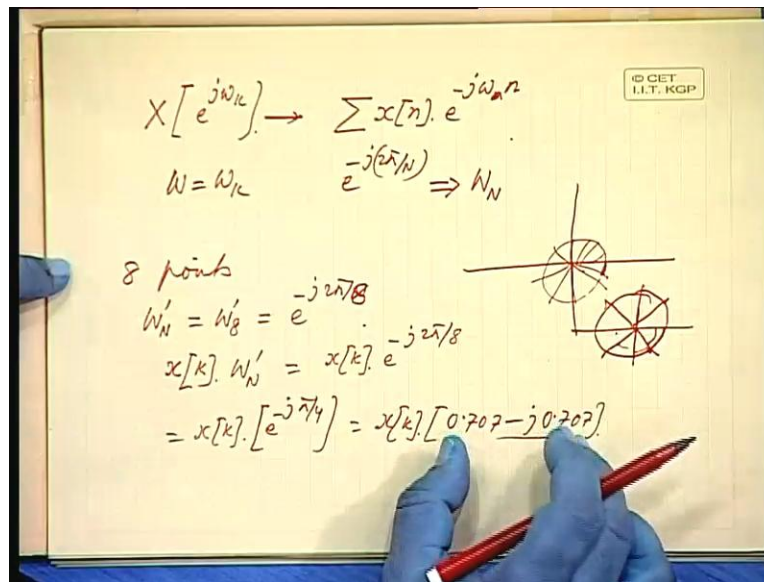 © CET
I.I.T. KGP
X[e^{jω_k}] → ∑ x[n]. e^{-jω_k n}
W = W_k e^{-j(2π/N)} ⇒ W_N
8 points
W_N^1 = W_8^1 = e^{-j2π/8}
x[k]. W_N^1 = x[k]. e^{-j2π/8}
= x[k]. [e^{-jπ/4}] = x[k]. [0.707 - j0.707].